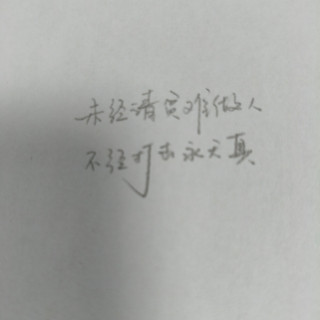 未经清贫难做人
不经打击永天真